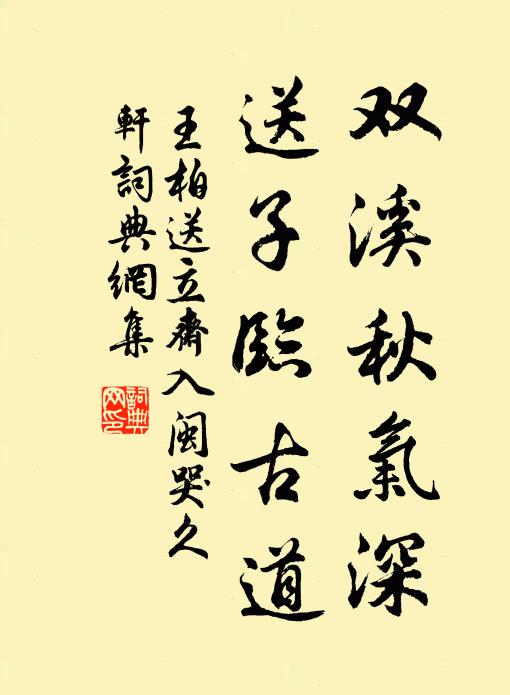 双溪秋氣深
送子臨古道
王柏送立齋入閩哭久
軒詞典網集
詞典
网印